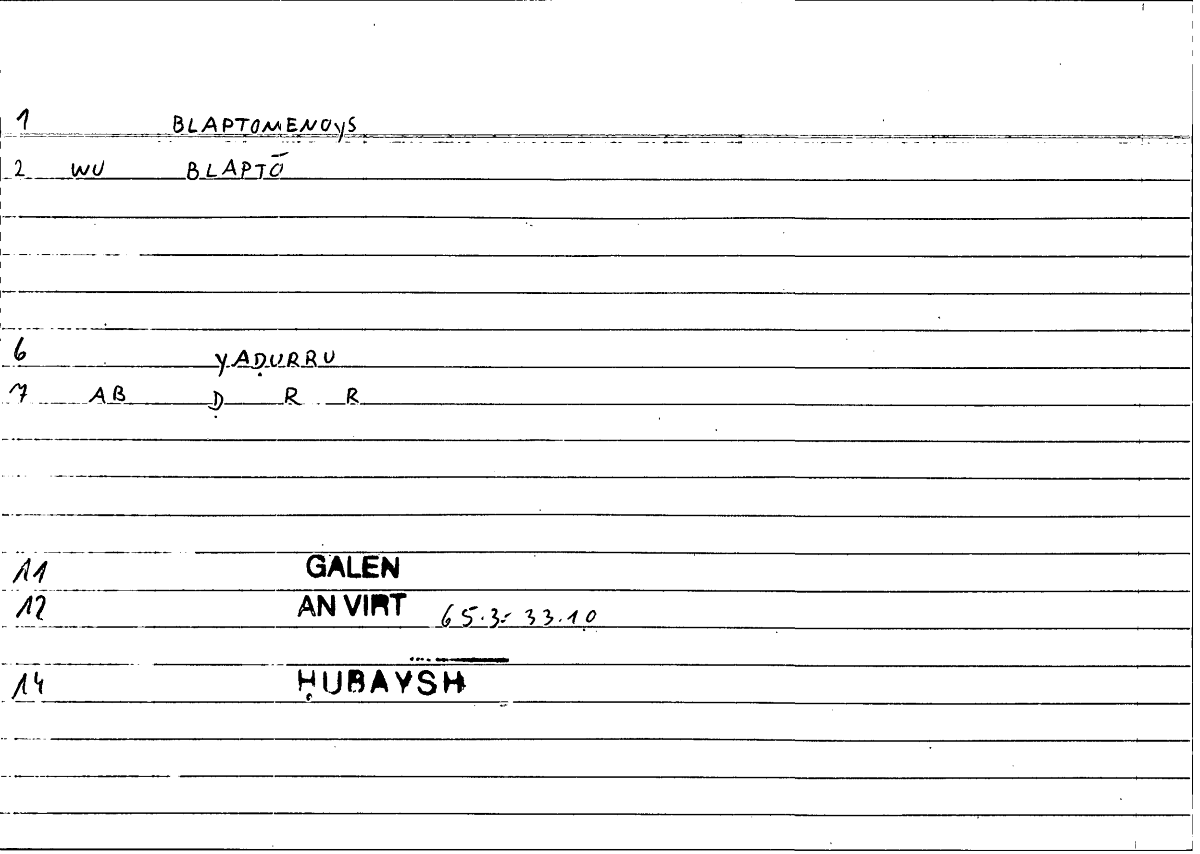 1 BLAPTOMENOYS
2 WU BLAPTŌ
6 YAḌURRU
7 AB Ḍ R R
11 GALEN
12 AN VIRT 65.3: 33.10
14 ḤUBAYSH